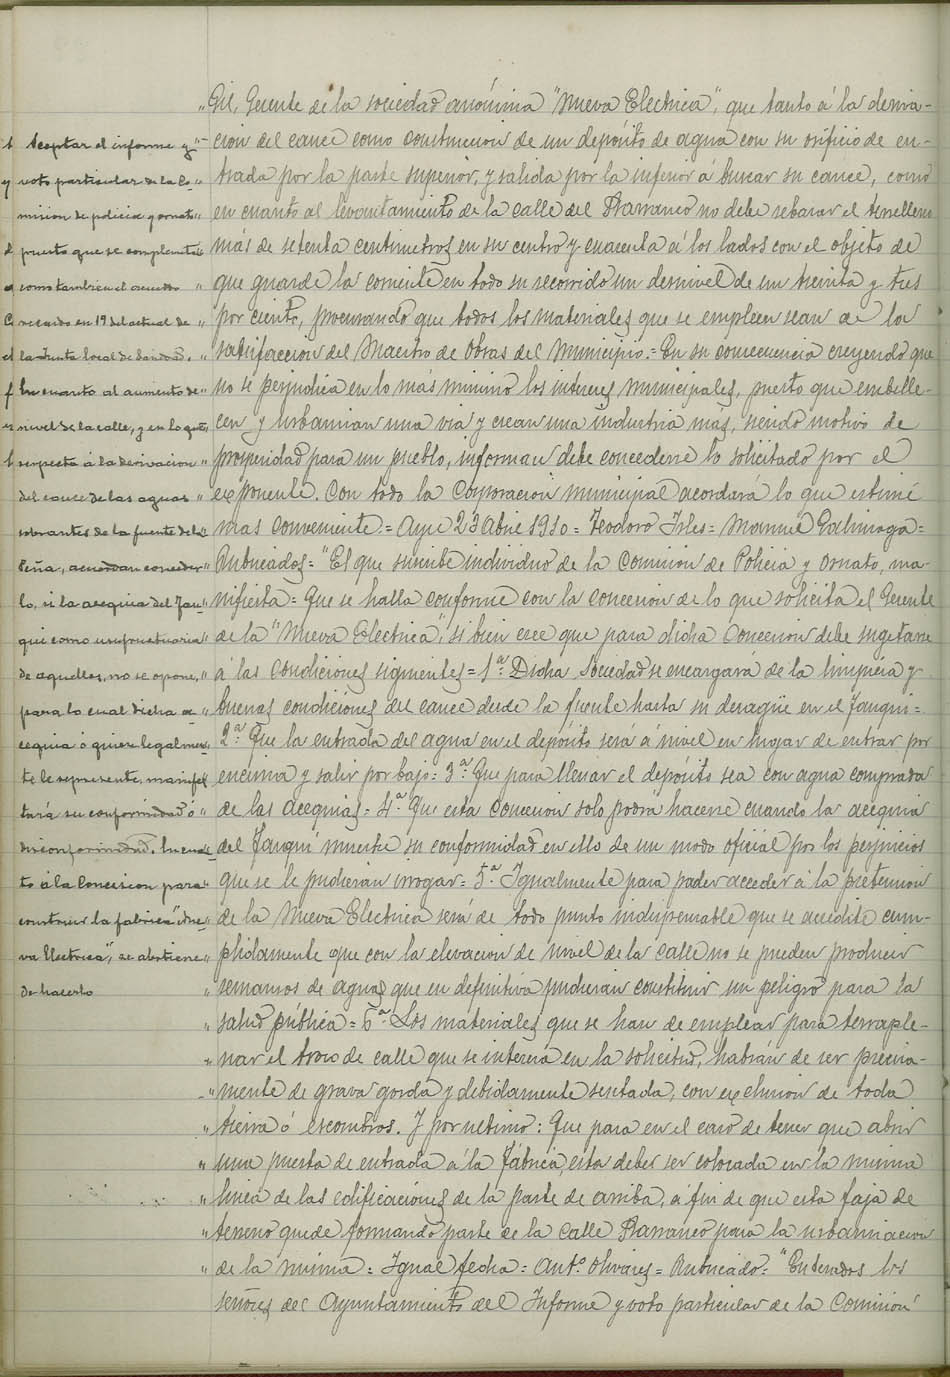 "Gil, Gerente de la sociedad anónima "Nueva Electrica", que tanto á la deriva-
cion del cauce como construcion de un depósito de agua con su orificio de en-
trada por la parte superior, y salida por la inferior á buscar su cauce, como
en cuanto al levantamiento de la calle del Barranco no debe rebasar el terrelleno
más de setenta centimetros en su centro y cuarenta á los lados con el objeto de
que guarde la corriente en todo su recorrido un desnivel de un treinta y tres
por ciento, procurando que todos los materiales que se empleen sean de la
satisfaccion del Maestro de Obras del Municipio.= En su consecuencia creyendo que
no se perjudica en lo más minimo los intereses municipales, puesto que embelle-
cen y urbanizan una via y crean una industria más, siendo motivo de
prosperidad para un pueblo, informan debe concederse lo solicitado por el
exponente. Con todo la Corporacion municipal acordará lo que estime
mas conveniente.= Aspe 23 Abril 1910 = Teodoro Irles = Manuel Galinsoga =
Rubricados = "El que suscribe individuo de la Comision de Policia y Ornato, ma-
nifiesta = Que se halla conforme con la concesion de lo que solicita el Gerente
de la "Nueva Electrica", si bien cree que para dicha Concesion debe sugetarse
á las condiciones siguientes = 1ª Dicha Sociedad se encargará de la limpieza y
buenas condiciones del cauce desde la fuente hasta su desagüe en el Fauqui =
2ª Que la entrada del agua en el depósito será á nivel en lugar de entrar por
encima y salir por bajo = 3ª Que para llenar el depósito sea con agua comprada
de las acequias = 4ª Que esta concesion solo podrá hacerse cuando la acequia
del Fauqui muestre su conformidad en ello de un modo oficial por los perjuicios
que se le pudieran irrogar = 5ª Igualmente para poder acceder á la pretension
de la Nueva Electrica será de todo punto indispensable que se acredite cum-
plidamente que con la elevacion de nivel de la calle no se pueden producir
remansos de aguas que en definitiva pudieran constituir un peligro para la
salud pública = 6ª Los materiales que se han de emplear para terraple-
nar el trozo de calle que se interesa en la solicitud, habrán de ser precisa-
mente de grava gorda y debidamente sentada, con exclusion de toda
tierra ó escombros. Y por ultimo: Que para en el caso de tener que abrir
una puerta de entrada á la Fábrica, esta deber ser colocada en la misma
linea de las edificaciones de la parte de arriba, á fin de que esta faja de
terreno quede formando parte de la calle Barranco para la urbanizacion
de la misma = Igual fecha = Antº Olivares = Rubricado = "Enterados los
señores del Ayuntamiento del Informe y voto particular de la Comision
Aceptar el informe y
voto particular de la Co-
mision de policia y ornato
puesto que se complementa
como tambien el acuerdo
recaido en 19 del actual de
la Junta local de Sanidad,
En cuanto al aumento de
nivel de la calle, y en lo que
respecta á la derivacion
del cauce de las aguas
sobrantes de la fuente de la
Peña, acuerdan conceder-
lo, si la acequia del Fau-
qui como usufructuaria
de aquellas, no se opone,
para lo cual dicha a-
cequia ó quien legalmen-
te le represente, manifes-
tará su conformidad ó
disconformidad. En cuan-
to á la Concesion para
construir la fabrica "Nue-
va Electrica", se abstiene
de hacerlo